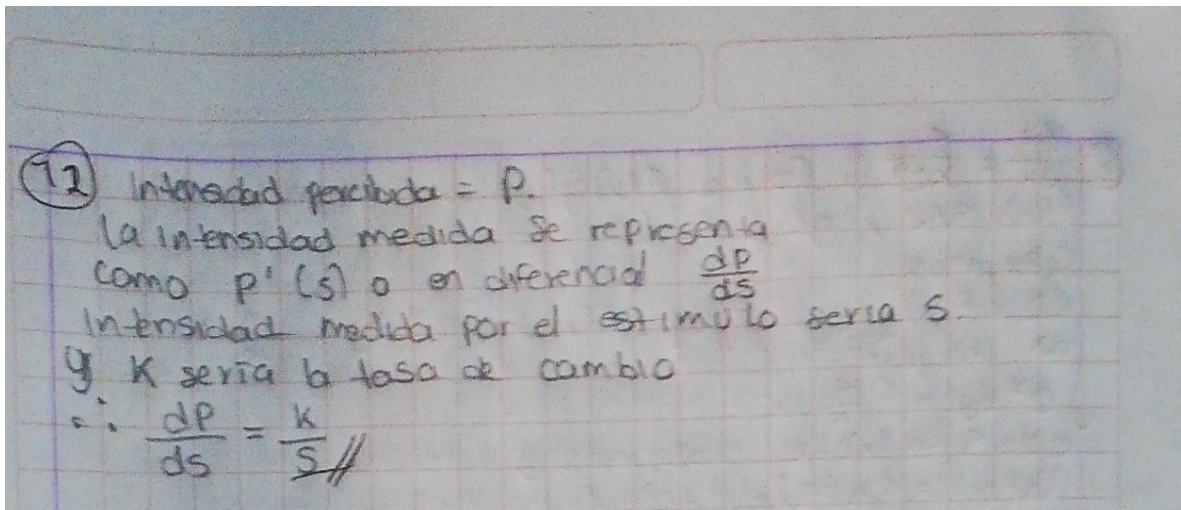 12 Intensidad percibida = P.
La intensidad medida se representa
como P'(s) o en diferencial dP/ds
Intensidad medida por el estimulo seria S.
y K sería la tasa de cambio
∴ dP/ds = K/S //